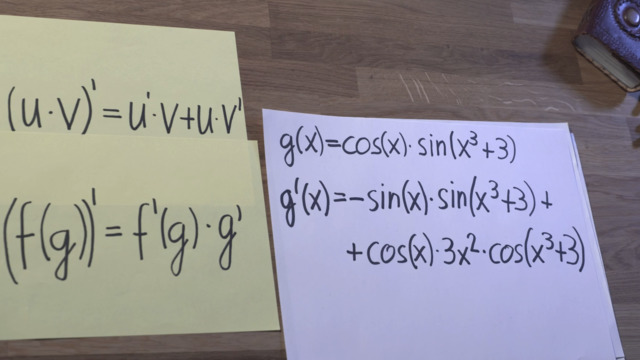 (u·v)'=u'·v+u·v'
(f(g))'=f'(g)·g'
g(x)=cos(x)·sin(x³+3)
g'(x)=-sin(x)·sin(x³+3)+
+cos(x)·3x²·cos(x³+3)